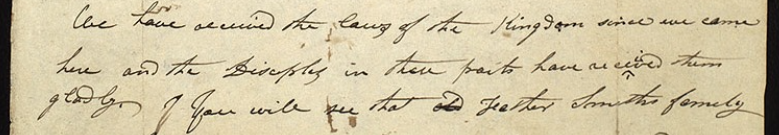 We have received the laws of the Kingdom since we came
here and the Disciples in these parts have received them
gladly. You will see that Father Smiths family